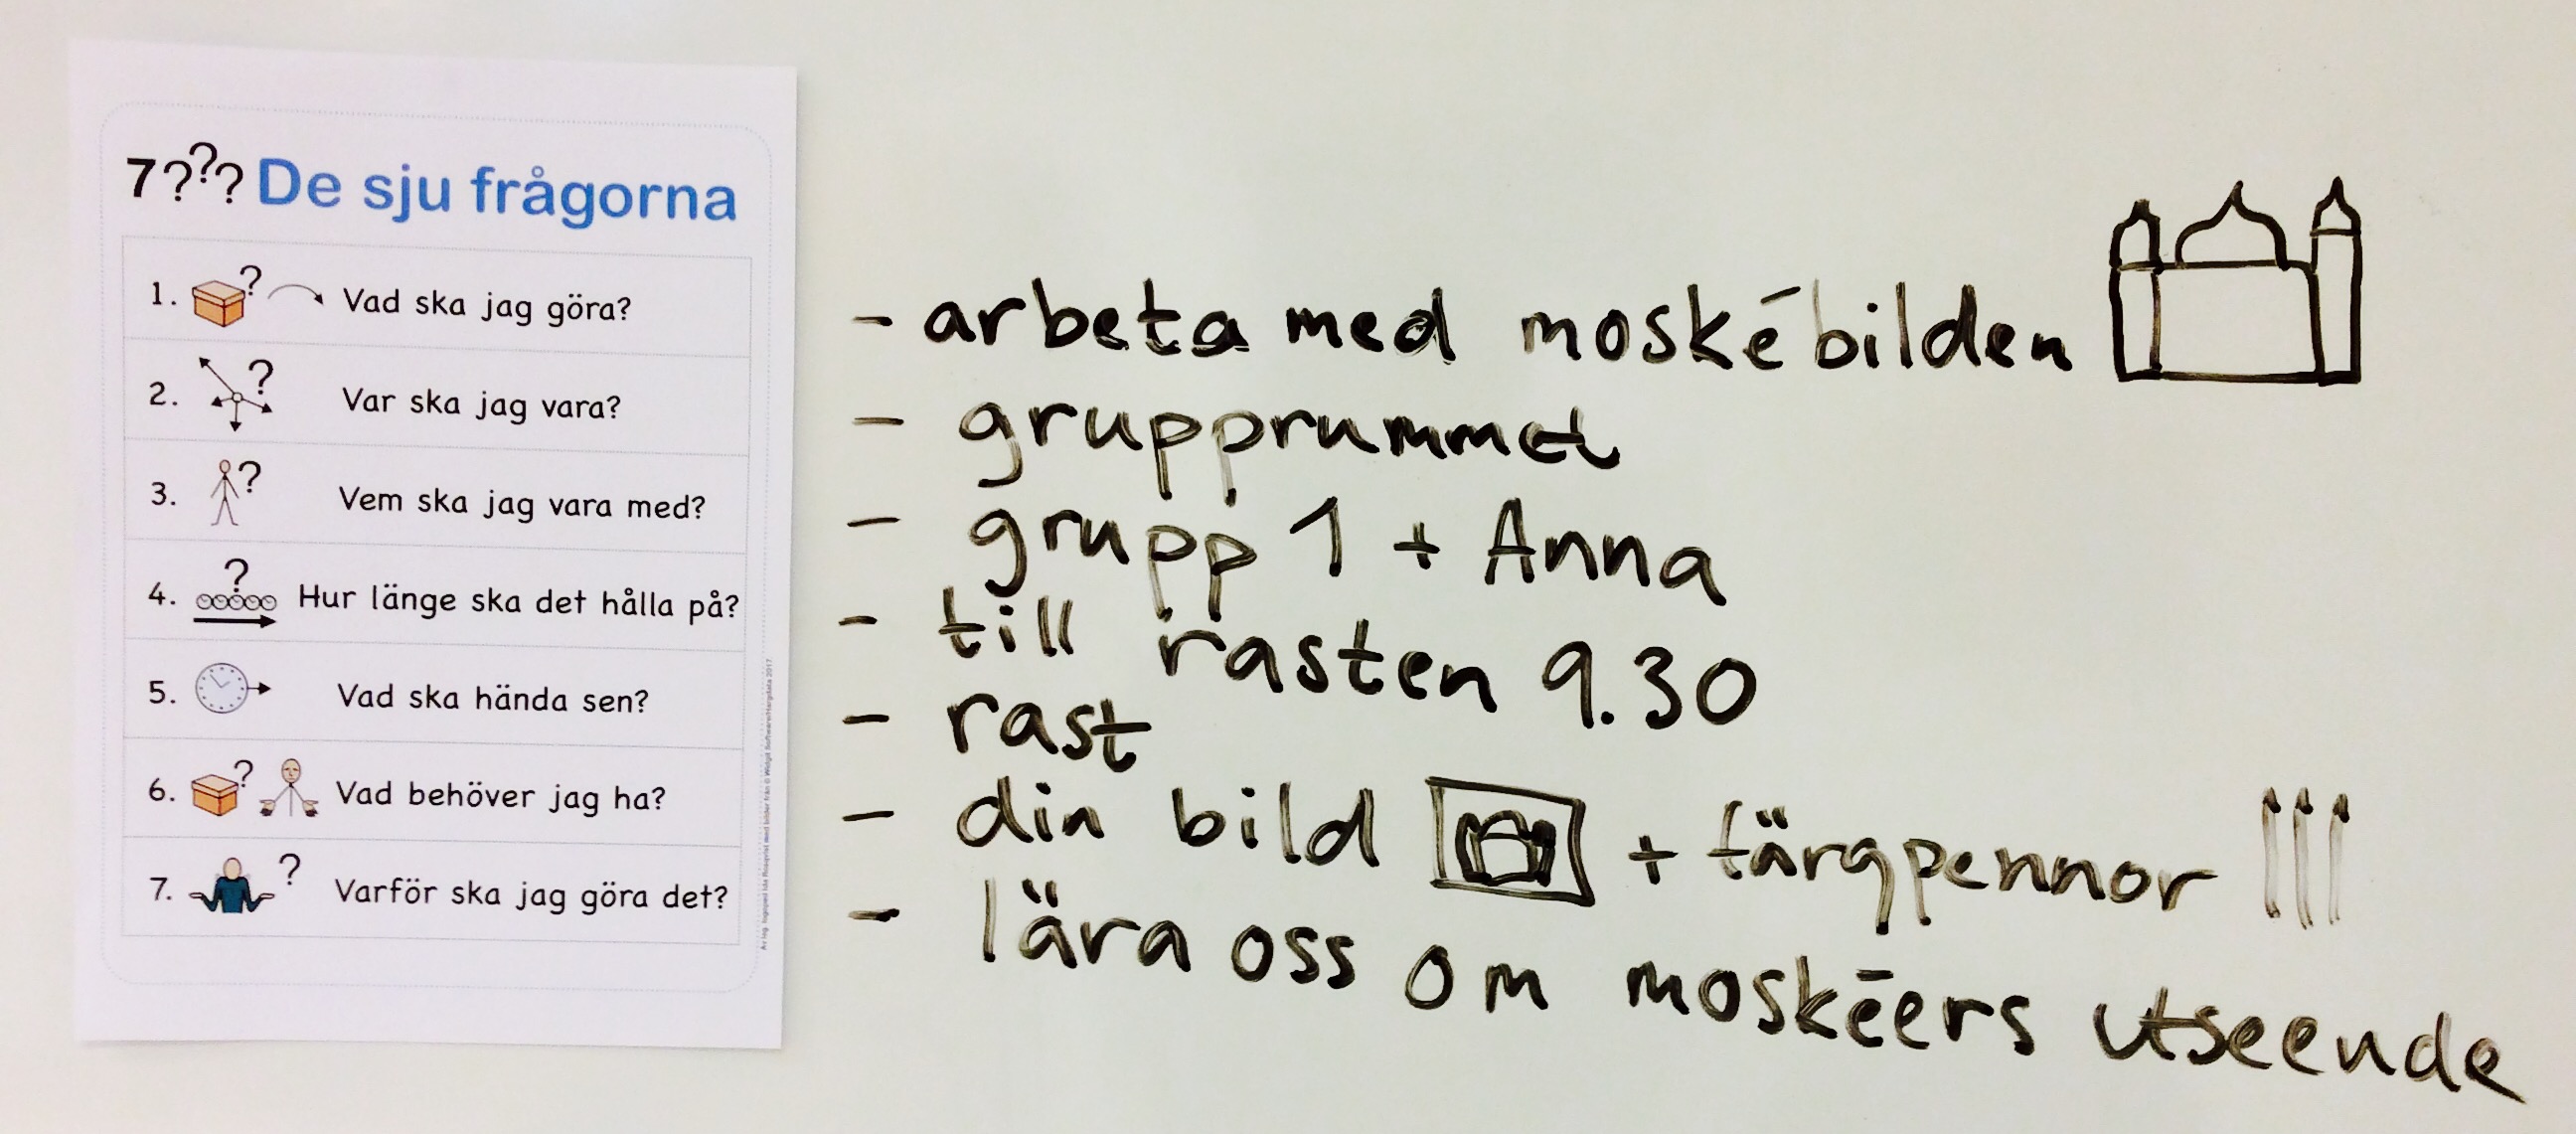 7??? De sju frågorna
1. ? Vad ska jag göra?
- arbeta med moskébilden
2. ? Var ska jag vara?
- grupprummet
3. ? Vem ska jag vara med?
- grupp 1 + Anna
4. ? Hur länge ska det hålla på?
- till rasten 9.30
5. Vad ska hända sen?
- rast
6. ? Vad behöver jag ha?
- din bild + färgpennor
7. ? Varför ska jag göra det?
- lära oss om moskéers utseende